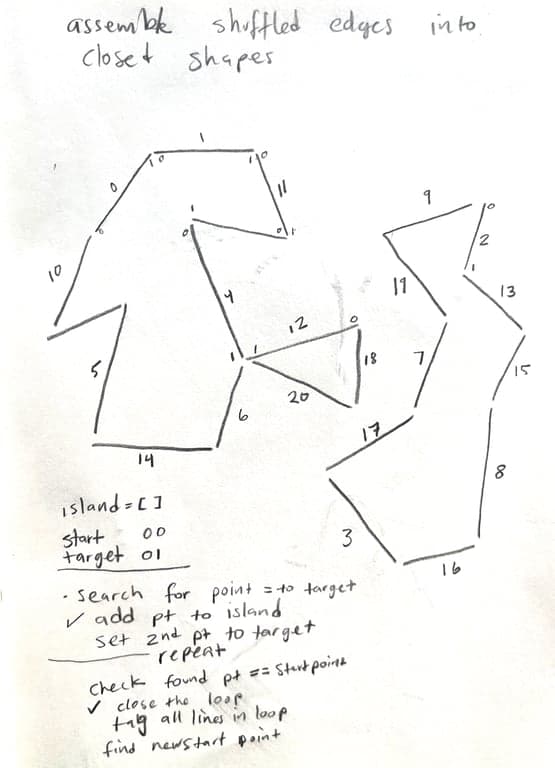 assemble shuffled edges into
closet shapes
1
0
1
0
1
0
0
11
1
0
1
0
10
9
0
2
1
13
11
4
12
0
1
1
18
7
15
5
20
6
17
14
8
3
16
island = [ ]
start 00
target 01
· search for point = to target
✓ add pt to island
set 2nd pt to target
repeat
check found pt == startpoint
✓ close the loop
tag all lines in loop
find newstart point